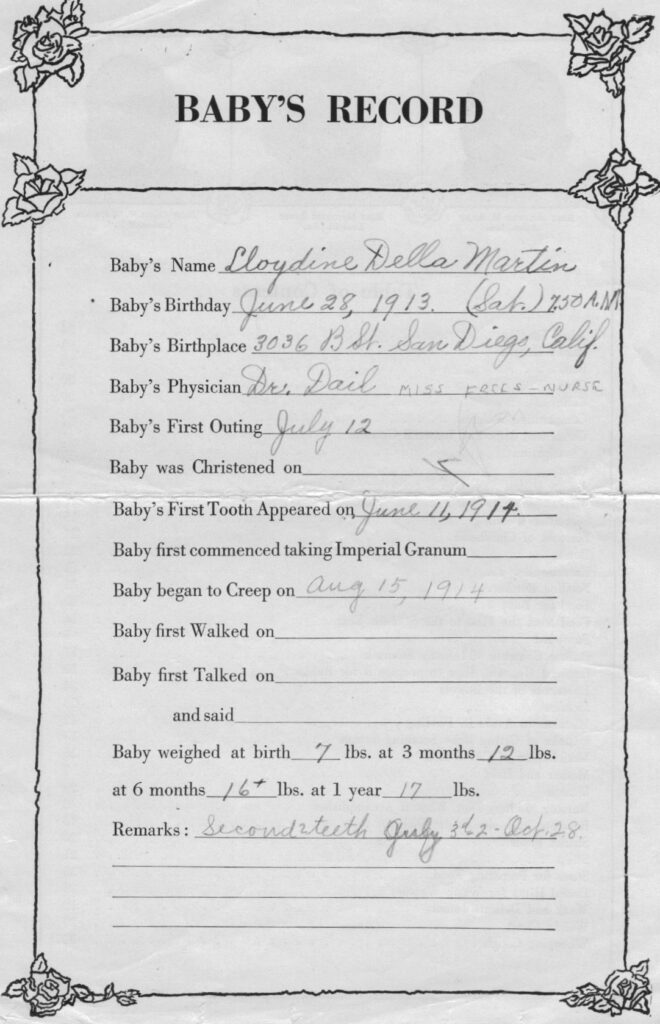 BABY'S RECORD
Baby's Name Lloydine Della Martin
Baby's Birthday June 28, 1913. (Sat.) 7:50 A.M.
Baby's Birthplace 3036 B St. San Diego, Calif.
Baby's Physician Dr. Dail MISS - NURSE
Baby's First Outing July 12
Baby was Christened on
Baby's First Tooth Appeared on June 11, 1914.
Baby first commenced taking Imperial Granum
Baby began to Creep on Aug 15, 1914
Baby first Walked on
Baby first Talked on
and said
Baby weighed at birth 7 lbs. at 3 months 12 lbs.
at 6 months 16+ lbs. at 1 year 17 lbs.
Remarks: Second 2 teeth July 3d 2 - Oct. 28.